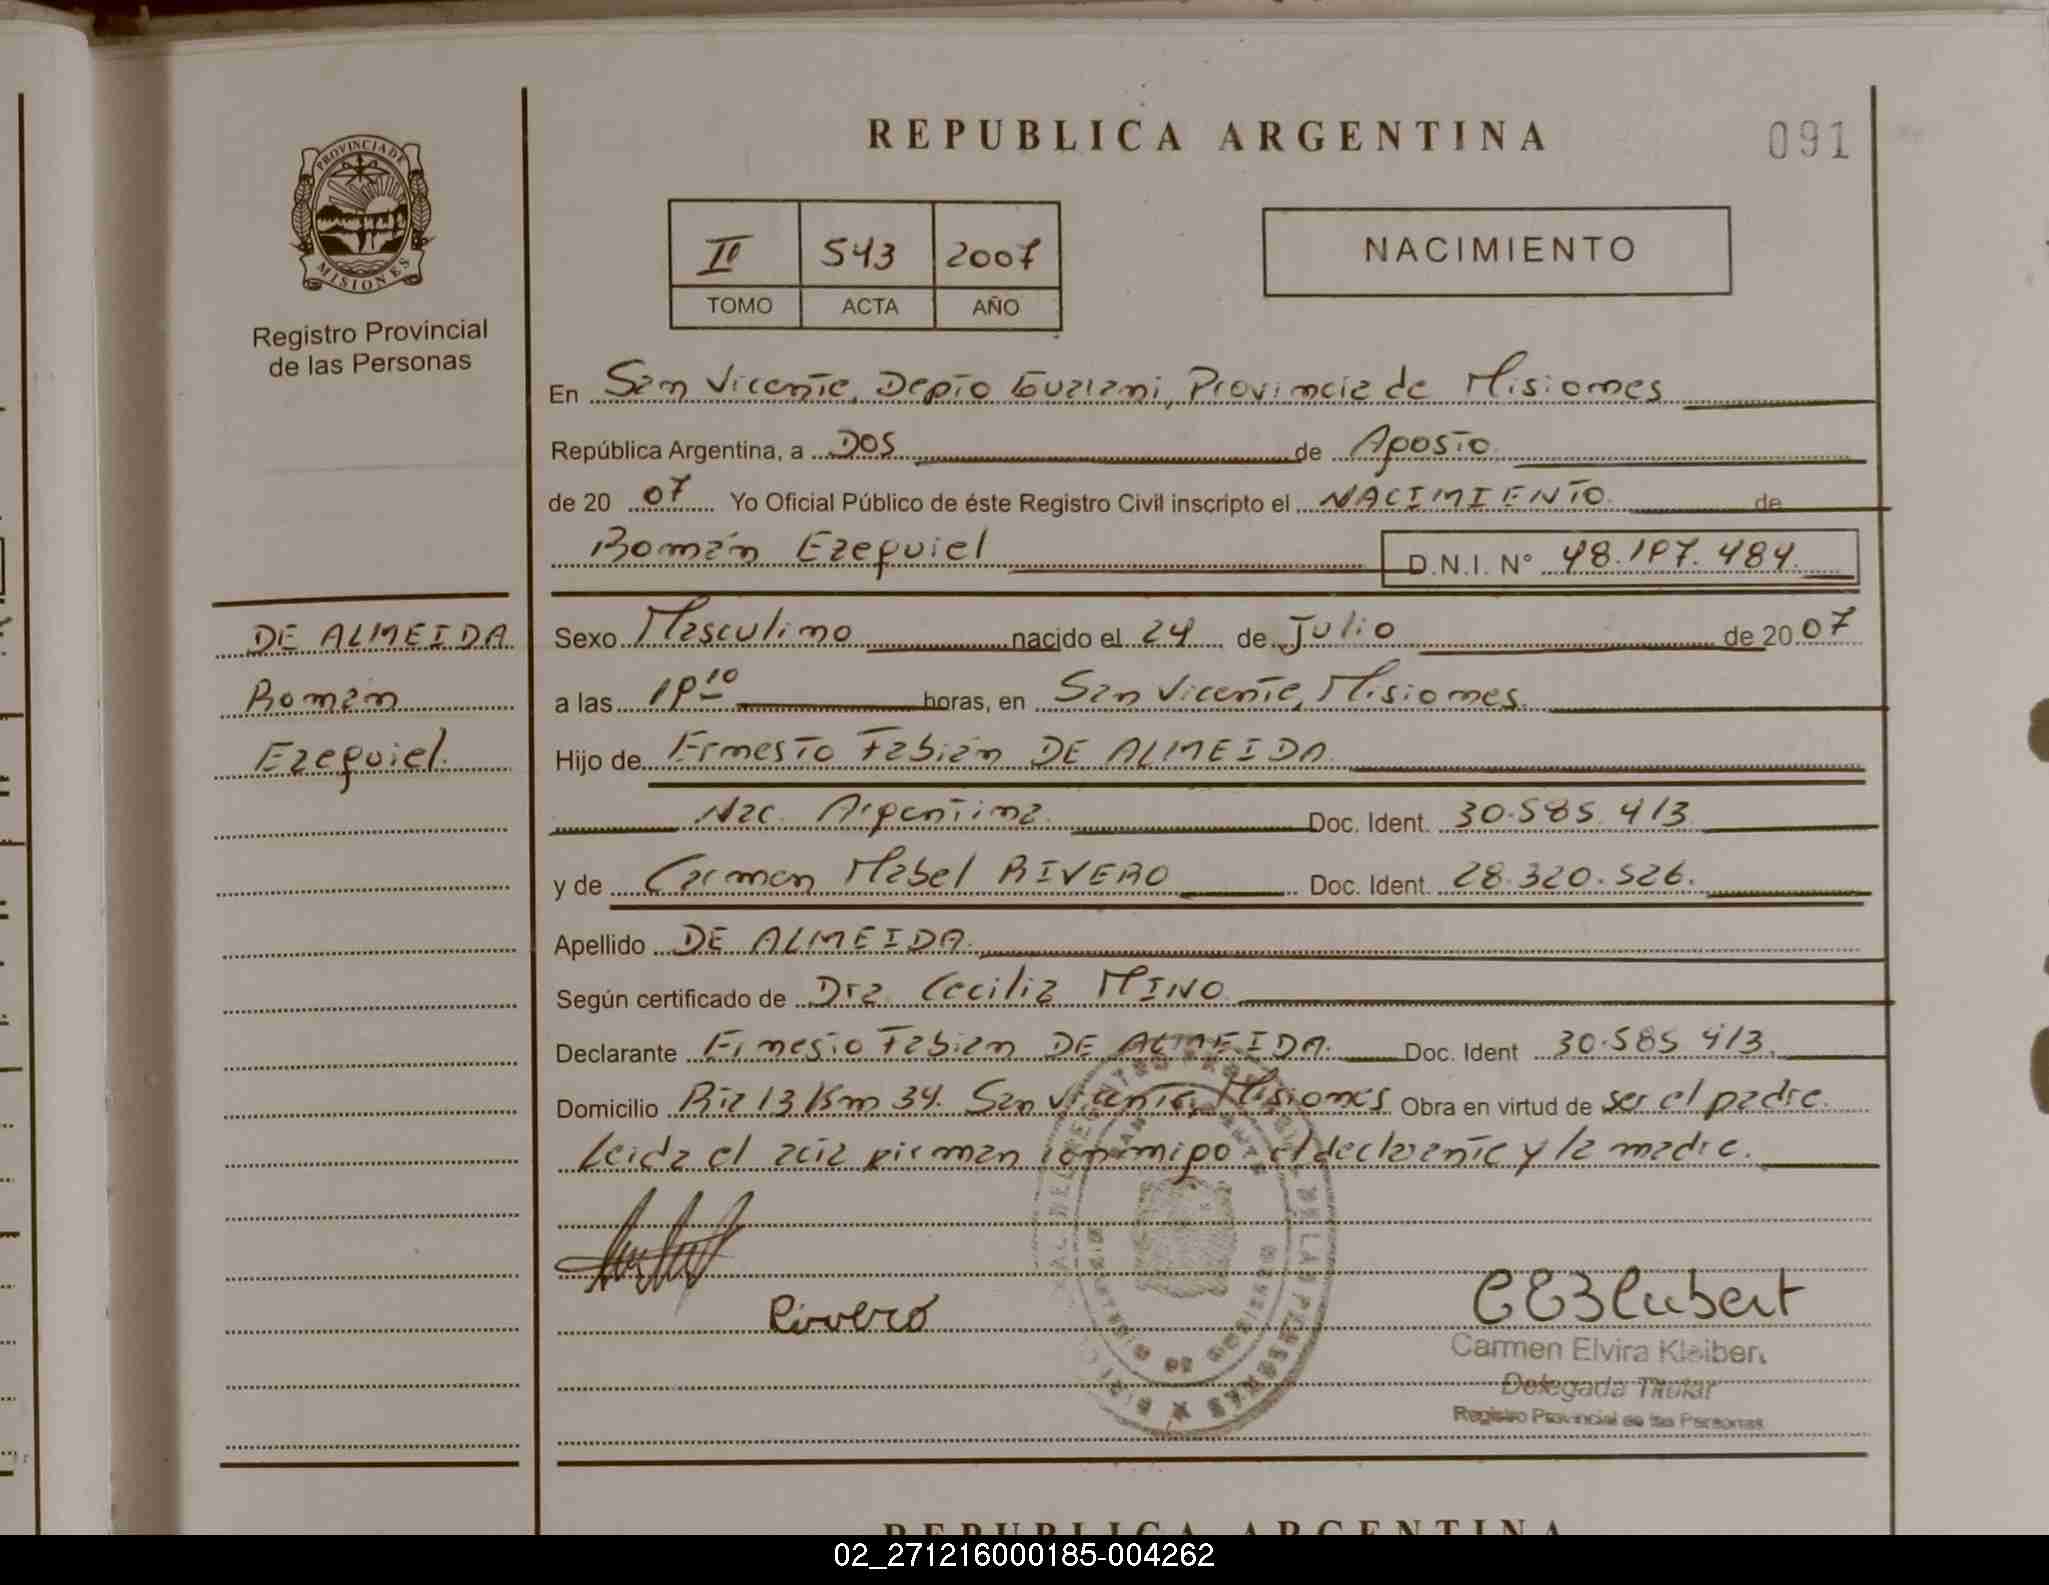 REPUBLICA ARGENTINA
091
PROVINCIA DE
MISIONES
Registro Provincial
de las Personas
II 543 2007
TOMO ACTA AÑO
NACIMIENTO
En San Vicente, Depto Guarani, Provincia de Misiones
República Argentina, a DOS de Agosto
de 20 07 Yo Oficial Público de éste Registro Civil inscripto el NACIMIENTO de
Román Ezequiel D.N.I. N° 48.197.484.
DE ALMEIDA
Román
Ezequiel.
Sexo Masculino nacido el 24 de Julio de 20 07
a las 19 10 horas, en San Vicente, Misiones.
Hijo de Ernesto Fabián DE ALMEIDA
Nac. Argentina. Doc. Ident. 30.585.413
y de Carmen Mabel RIVERO Doc. Ident. 28.320.526.
Apellido DE ALMEIDA
Según certificado de Dra. Cecilia MINO
Declarante Ernesto Fabian DE ALMEIDA. Doc. Ident 30.585 413.
Domicilio Rta 13 Km 34. San Vicente, Misiones Obra en virtud de ser el padre.
Leida el acta firman conmigo el declarante y la madre.
Rivero
Carmen Elvira
Delegada Titular
Registro Provincial de las Personas
REPUBLICA ARGENTINA
02_271216000185-004262